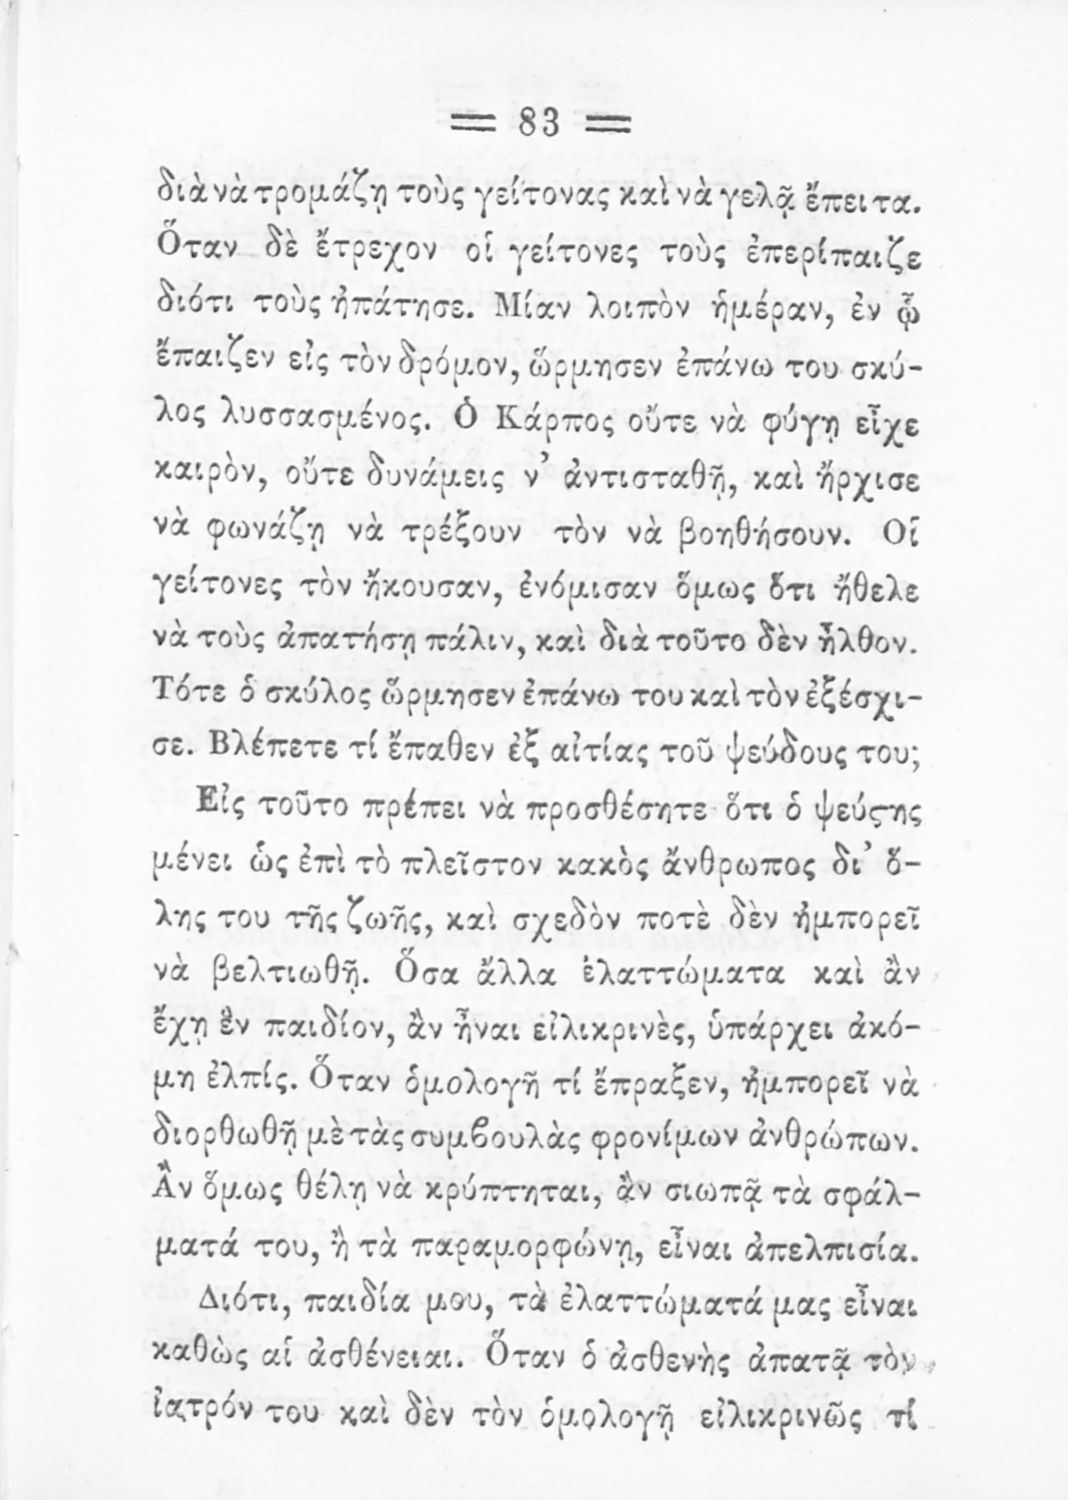 = 83 =
διὰ νὰ τρομάζῃ τοὺς γείτονας καὶ νὰ γελᾷ ἔπειτα.
Ὅταν δὲ ἔτρεχον οἱ γείτονες τοὺς ἐπερίπαιζε
διότι τοὺς ἠπάτησε. Μίαν λοιπὸν ἡμέραν, ἐν ᾧ
ἔπαιζεν εἰς τὸν δρόμον, ὥρμησεν ἐπάνω του σκύ-
λος λυσσασμένος. Ὁ Κάρπος οὔτε νὰ φύγῃ εἶχε
καιρὸν, οὔτε δυνάμεις ν’ ἀντισταθῇ, καὶ ἤρχισε
νὰ φωνάζῃ νὰ τρέξουν τὸν νὰ βοηθήσουν. Οἱ
γείτονες τὸν ἤκουσαν, ἐνόμισαν ὅμως ὅτι ἤθελε
νὰ τοὺς ἀπατήσῃ πάλιν, καὶ διὰ τοῦτο δὲν ἦλθον.
Τότε ὁ σκύλος ὥρμησεν ἐπάνω του καὶ τὸν ἐξέσχι-
σε. Βλέπετε τί ἔπαθεν ἐξ αἰτίας τοῦ ψεύδους του;
Εἰς τοῦτο πρέπει νὰ προσθέσητε ὅτι ὁ ψεύϛης
μένει ὡς ἐπὶ τὸ πλεῖστον κακὸς ἄνθρωπος δι’ ὅ-
λης του τῆς ζωῆς, καὶ σχεδὸν ποτὲ δὲν ἠμπορεῖ
νὰ βελτιωθῇ. Ὅσα ἄλλα ἐλαττώματα καὶ ἂν
ἔχῃ ἓν παιδίον, ἂν ἦναι εἰλικρινὲς, ὑπάρχει ἀκό-
μη ἐλπίς. Ὅταν ὁμολογῇ τί ἔπραξεν, ἠμπορεῖ νὰ
διορθωθῇ μὲ τὰς συμϐουλὰς φρονίμων ἀνθρώπων.
Ἂν ὅμως θέλῃ νὰ κρύπτηται, ἂν σιωπᾷ τὰ σφάλ-
ματά του, ἢ τὰ παραμορφώνῃ, εἶναι ἀπελπισία.
Διότι, παιδία μου, τὰ ἐλαττώματά μας εἶναι
καθὼς αἱ ἀσθένειαι. Ὅταν ὁ ἀσθενὴς ἀπατᾷ τὸν
ἰατρόν του καὶ δὲν τὸν ὁμολογῇ εἰλικρινῶς τί